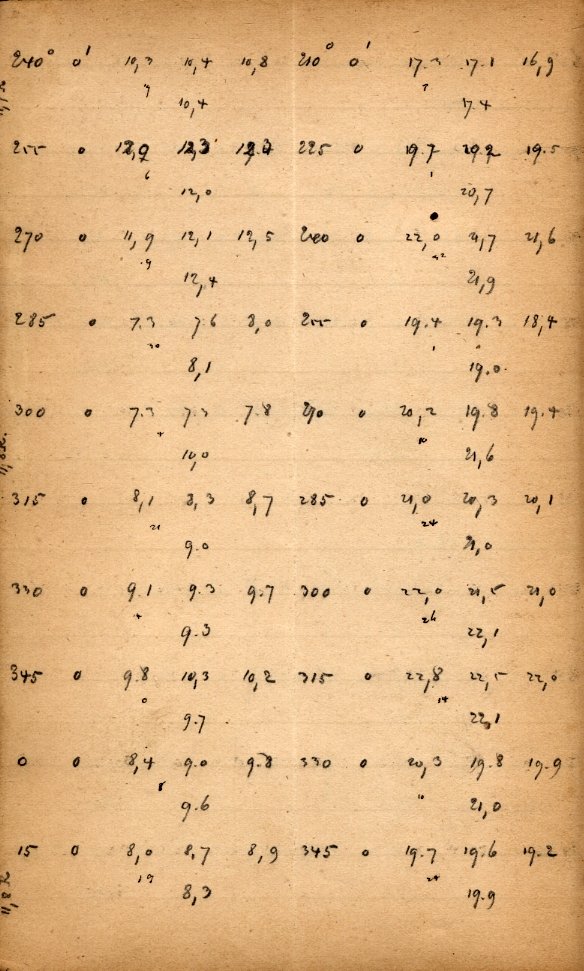 240° 0' 10,3 10,4 10,8 210° 0' 17.3 17.1 16,9
10,4 17.4
255 0 12,3 225 0 19.7 19.5
6 1
12,0 20,7
270 0 11,9 12,1 12,5 240 0 22,0 21,7 21,6
9
12,4 21,9
285 0 7.3 7.6 8,0 255 0 19.4 19.3 18,4
30 1
8,1 19.0
300 0 7.3 7.3 7.8 270 0 20,2 19.8 19.4
10
10,0 21,6
315 0 8,1 8,3 8,7 285 0 21,0 20,3 20,1
21 24
9.0 21,0
330 0 9.1 9.3 9.7 300 0 22,0 21,5 21,0
26
9.3 22,1
345 0 9.8 10,3 10,2 315 0 22,8 22,5 22,0
0 14
9.7 22,1
0 0 8,4 9.0 9.8 330 0 20,3 19.8 19.9
9.6 21,0
15 0 8,0 8,7 8,9 345 0 19.7 19.6 19.2
19 24
8,3 19.9